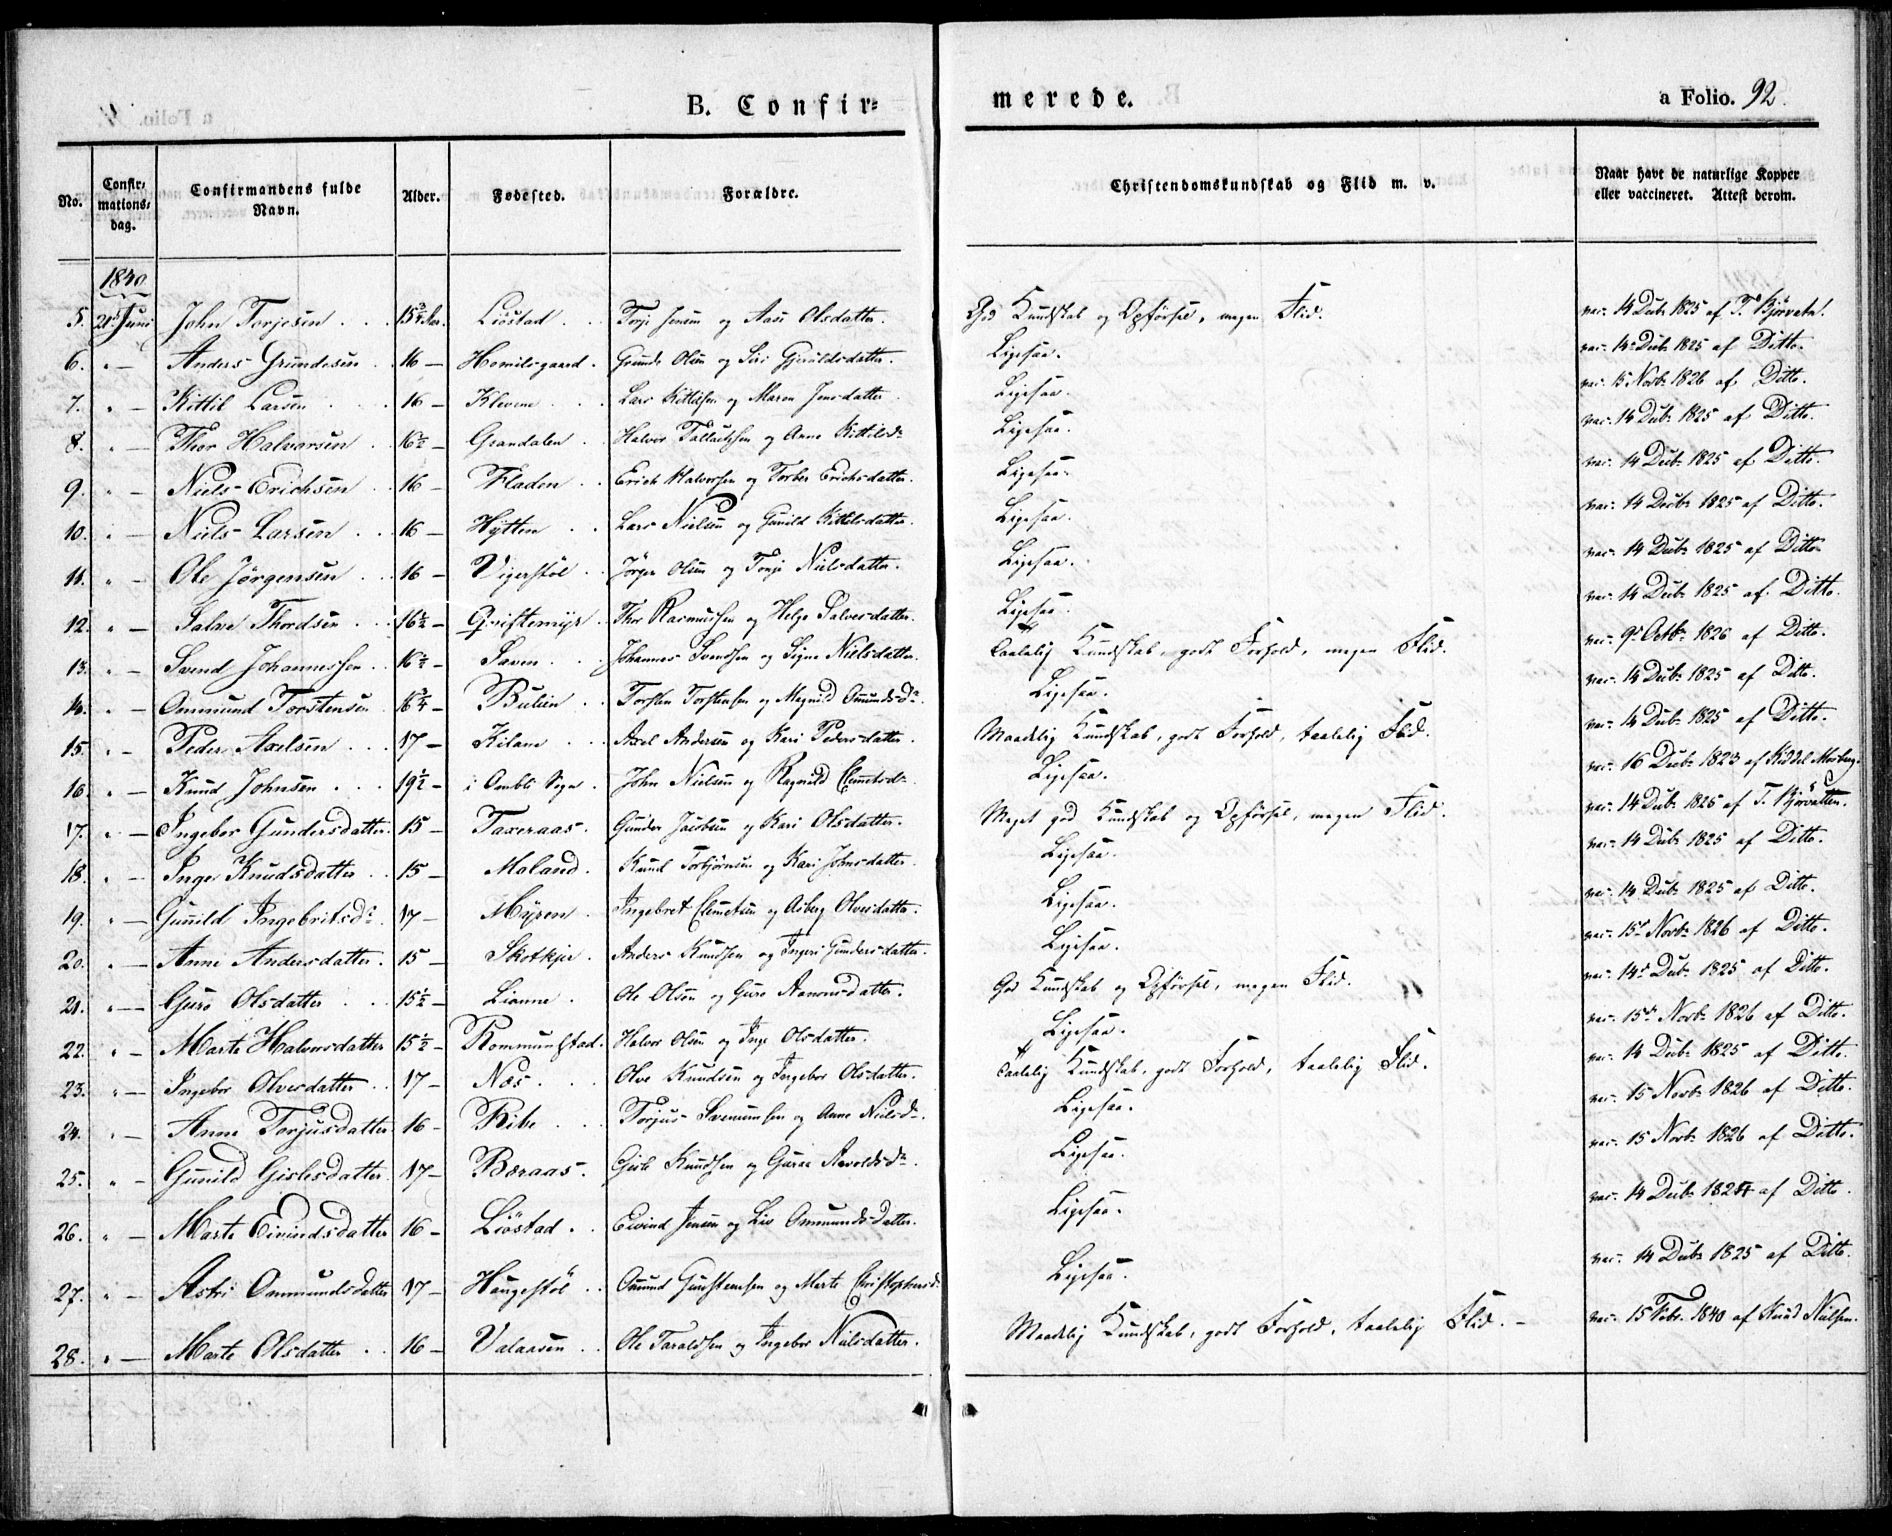 B. Confir=
merede.
a Folio. 92.
No.
Confir=
mations=
dag.
Confirmandens fulde
Navn.
Alder.
Fødested.
Forældre.
Christendomskundskab og Flid m. v.
Naar havt de naturlige Kopper
eller vaccineret. Attest derom.
1840
5. 21 Juni John Torjesen 15 3/4 Aar. Liöstad Torje Jensen og Aase Olsdatter. God Kundskab og Opførsel, megen Flid. vac. 14 Decbr 1825 af T. Bjørvatn.
6. " — Anders Grundesen 16 — Homilsgaard. Grunde Olsen og Siri Gjeruldsdatter. Ligesaa. vac. 14 Decbr 1825 af Ditto.
7. " — Kittil Larsen 16 — Klevene Lars Kittilsen og Maren Jensdatter Ligesaa. vac. 15 Novbr 1826 af Ditto.
8. " — Thor Halvorsen 16 1/2 — Grandalen Halvor Tallachsen og Anne Kittilsdr Ligesaa. vac. 14 Decbr 1825 af Ditto.
9. " — Niels Erichsen 16 — Fladen Erich Halvorsen og Torber Erichsdatter. Ligesaa. vac. 14 Decbr 1825 af Ditto.
10. " — Niels Larsen 16 — Hytten Lars Nielsen og Gunild Kittilsdatter. Ligesaa. vac. 14 Decbr 1825 af Ditto.
11. " — Ole Jörgensen 16 — Vigerstöl Jörgen Olsen og Tonje Nielsdatter. Ligesaa. vac. 14 Decbr 1825 af Ditto
12. " — Salve Thordsen 16 1/2 — Qvistemyr Thor Rasmussen og Helge Salvesdatter. Ligesaa. vac. 14 Decbr 1825 af Ditto.
13. " — Svend Johannessen 16 1/2 — Saven Johannes Svendsen og Signe Nielsdatter. Taalelig Kundskab, godt Forhold, megen Flid. vac. 9d Octbr 1826 af Ditto.
14. " — Ommund Torstensen 16 3/4 — Bulien Torsten Torstensen og Magnild Omundsdr. Ligesaa. vac. 14 Decbr 1825 af Ditto.
15. " — Peder Axelsen 17 — Kilane Axel Andersen og Kari Pedersdatter. Maadelig Kundskab, godt Forhold, taalelig Flid. vac. 14 Decbr 1825 af Ditto.
16. " — Knud Johnsen 19 1/2 — i Ombli Sogn. John Nielsen og Ragnild Clemetsdr Ligesaa. vac. 16 Decbr 1823 af Kiddel Mosberg.
17. " — Ingebor Gundersdatter. 15 — Taxeraas. Gunder Jacobsen og Kari Olsdatter. Meget god Kundskab og Opførsel, megen Flid. vac. 14 Decbr 1825 af T. Bjørvatten.
18. " — Inge Knudsdatter 15 — Moland. Knud Torbjørnsen og Kari Johnsdatter. Ligesaa. vac. 14 Decbr 1825 af Ditto.
19. " — Gunild Ingebritsdr. 17 — Myren. Ingebret Clemetsen og Asberg Olvesdatter. Ligesaa. vac. 14 Decbr 1825 af Ditto.
20. " — Anne Andersdatter. 15 — Skotkjer. Anders Knudsen og Ingeri Gundersdatter. Ligesaa. vac. 15d Novbr 1826 af Ditto.
21. " — Guro Olsdatter 15 1/2 — Lianne. Ole Olsen og Guro Aanonsdatter. God Kundskab og Opførsel, megen Flid. vac. 14d Decbr 1825 af Ditto.
22. " — Marte Halvorsdatter 15 1/2 — Rommundstad. Halvor Olsen og Inge Olsdatter. Ligesaa. vac. 15d Novbr 1826 af Ditto.
23. " — Ingebor Olvesdatter 17 — Næs. Olve Knudsen og Ingebor Olsdatter. Taalelig Kundskab, godt Forhold, taalelig Flid. vac. 14 Decbr 1825 af Ditto.
24. " — Anne Torjusdatter 16 — Ribe Torjus Svenumsen og Anne Nielsdr. Ligesaa. vac. 15 Novbr 1826 af Ditto.
25. " — Gunild Gislesdatter 17 — Beraas. Gisle Knudsen og Guroe Aavoldsdr. Ligesaa. vac. 15 Novbr 1826 af Ditto.
26. " — Marte Eivindsdatter 16 — Liöstad. Eivind Jensen og Liv Ommundsdatter. Ligesaa. vac. 14 Decbr 1824 af Ditto.
27. " — Astri Ommundsdatter 17 — Haugestöl Omund Gunstensen og Marte Christophersdr Ligesaa. vac. 14 Decbr 1825 af Ditto.
28. " — Marte Olsdatter 16 — Valaasen Ole Taraldsen og Ingebor Nielsdatter. Maadelig Kundskab, godt Forhold, taalelig Flid. vac. 15 Febr. 1840 af Knud Nielsen.